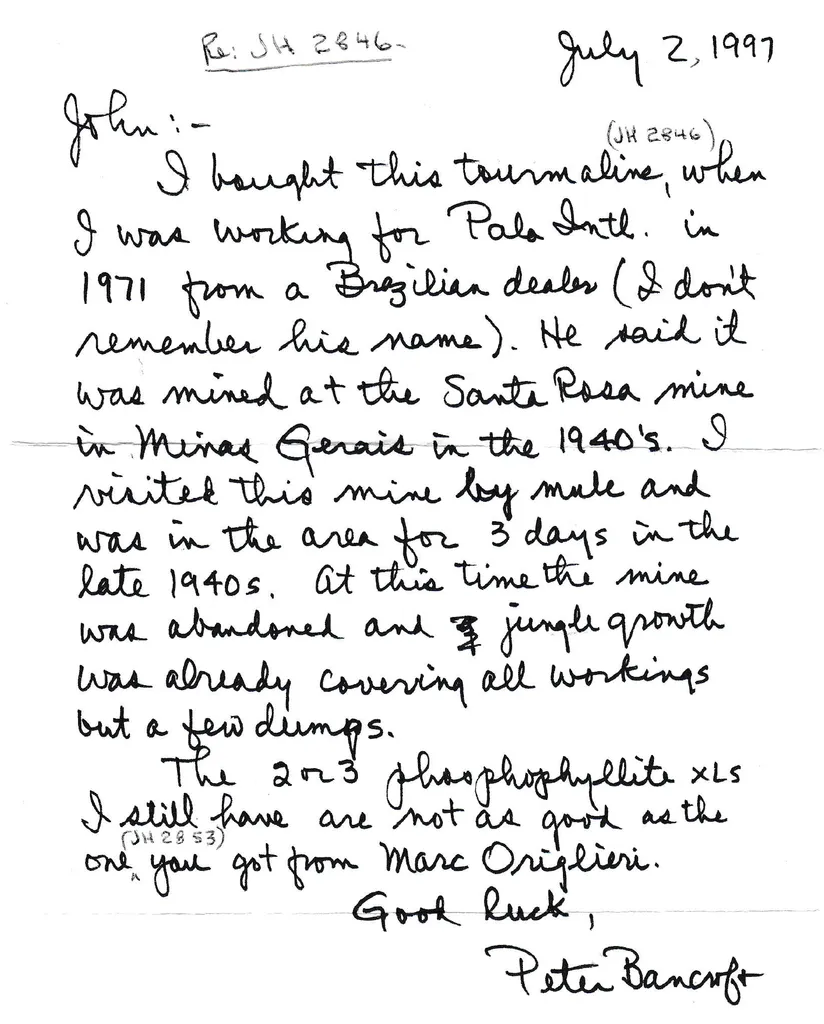 Re: JH 2846-
July 2, 1997
John:-
(JH 2846)
I bought this tourmaline, when
I was working for Pala Intl. in
1971 from a Brazilian dealer (I don't
remember his name). He said it
was mined at the Santa Rosa mine
in Minas Gerais in the 1940's. I
visited this mine by mule and
was in the area for 3 days in the
late 1940s. At this time the mine
was abandoned and jungle growth
was already covering all workings
but a few dumps.
The 2 or 3 phosphophyllite xLs
I still have are not as good as the
(JH 2853)
one you got from Marc Origlieri.
Good luck,
Peter Bancroft